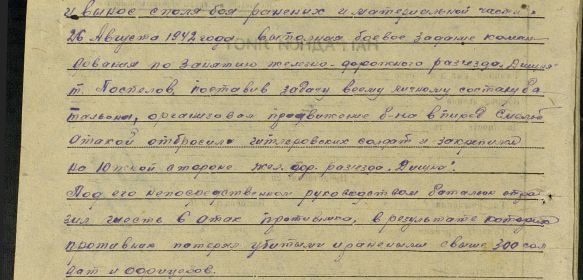 и вынос с поля боя раненых и материальной части.
26 Августа 1942 года выполняя боевое задание коман-
дования по занятию железно-дорожного разъезда "Дищня"
т. Поспелов, поставив задачу всему личному составу ба-
тальона, организовал продвижение б-на вперед смелой
атакой отбросил гитлеровских солдат и закрепился
на Южной стороне жел. дор. разъезда "Дищня".
Под его непосредственным руководством батальон отра-
зил шесть 6 атак противника, в результате которых
противник потерял убитыми и ранеными свыше 300 сол
дат и офицеров.